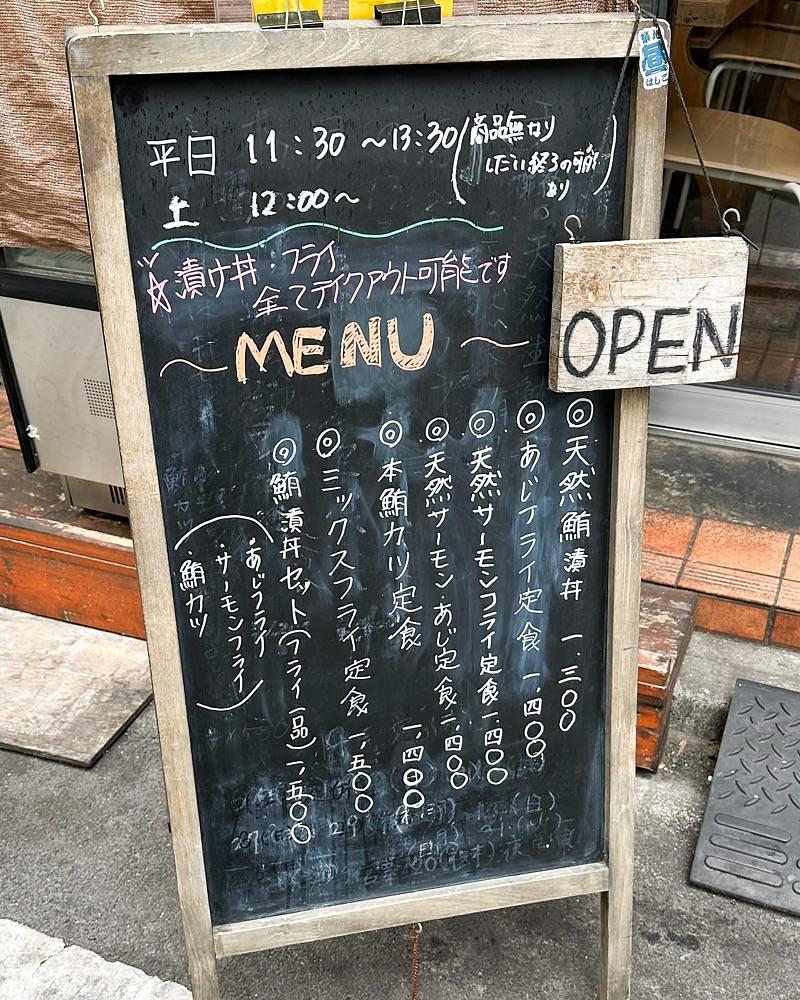 平日 11:30 ~13:30(商品無なり
しだい終了の可能
あり)
土 12:00~
昼
はしご
☆漬け丼・フライ
全てテイクアウト可能です
~MENU~
OPEN
◎天然鮪漬丼 一.三〇〇
◎あじフライ定食 一.四〇〇
◎天然サーモンフライ定食 一.四〇〇
◎天然サーモン・あじ定食 一.四〇〇
◎本鮪カツ定食 一.四〇〇
◎ミックスフライ定食 一.五〇〇
◎鮪漬丼セット(フライ一品) 一.五〇〇
(・あじフライ
・サーモンフライ
・鮪カツ)